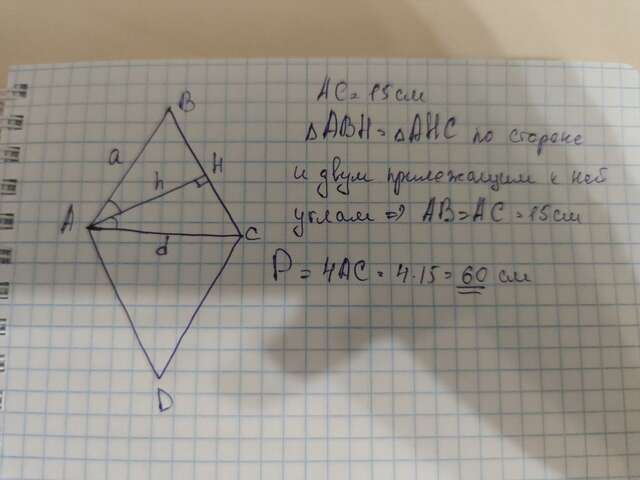 B
a
h
H
A
d
C
D
AC = 15 см
△ABH = △AHC по стороне
и двум прилежащим к ней
углам ⇒ AB = AC = 15 см
P = 4AC = 4·15 = 60 см